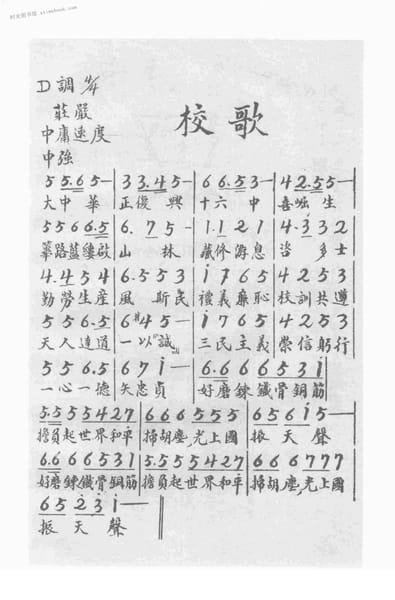 时光图书馆 stimebook.com
D調 4/4
校歌
莊嚴
中庸速度
中強
5 5.6 5— | 3 3.4 5— | 6 6.5 3— | 4 2.5 5—
大中華 正復興 十六中 喜崛生
5 5 6 6.5 | 6. 7 5 - | 1. 1 2 1 | 4. 3 3 2
篳路藍縷啟 山林 藏修游息 咨多士
4. 4 5 4 | 6. 5 5 3 | i 7 6 5 | 4 2 5 3
勤勞生產 風斯民 禮義廉恥 校訓共遵
5 5 6. 5 | 6 #4 5 — | i 7 6 5 | 4 2 5 3
天人達道 一以誠 三民主義 崇信躬行
5 5 6. 5 | 6 7 i — | 6.6 6 6 5 3 i
一心一德 矢忠貞 好磨鍊鐵骨銅筋
5.5 5 5 4 2 7 | 6 6 6 5 5 5 | 6 5 6 i 5 —
擔負起世界和平 掃胡塵,光上國 振天聲
6.6 6 6 5 3 1 | 5.5 5 5 4 2 7 | 6 6 6 7 7 7
好磨鍊鐵骨銅筋 擔負起世界和平 掃胡塵,光上國
6 5 2 3 i — ‖
振天聲